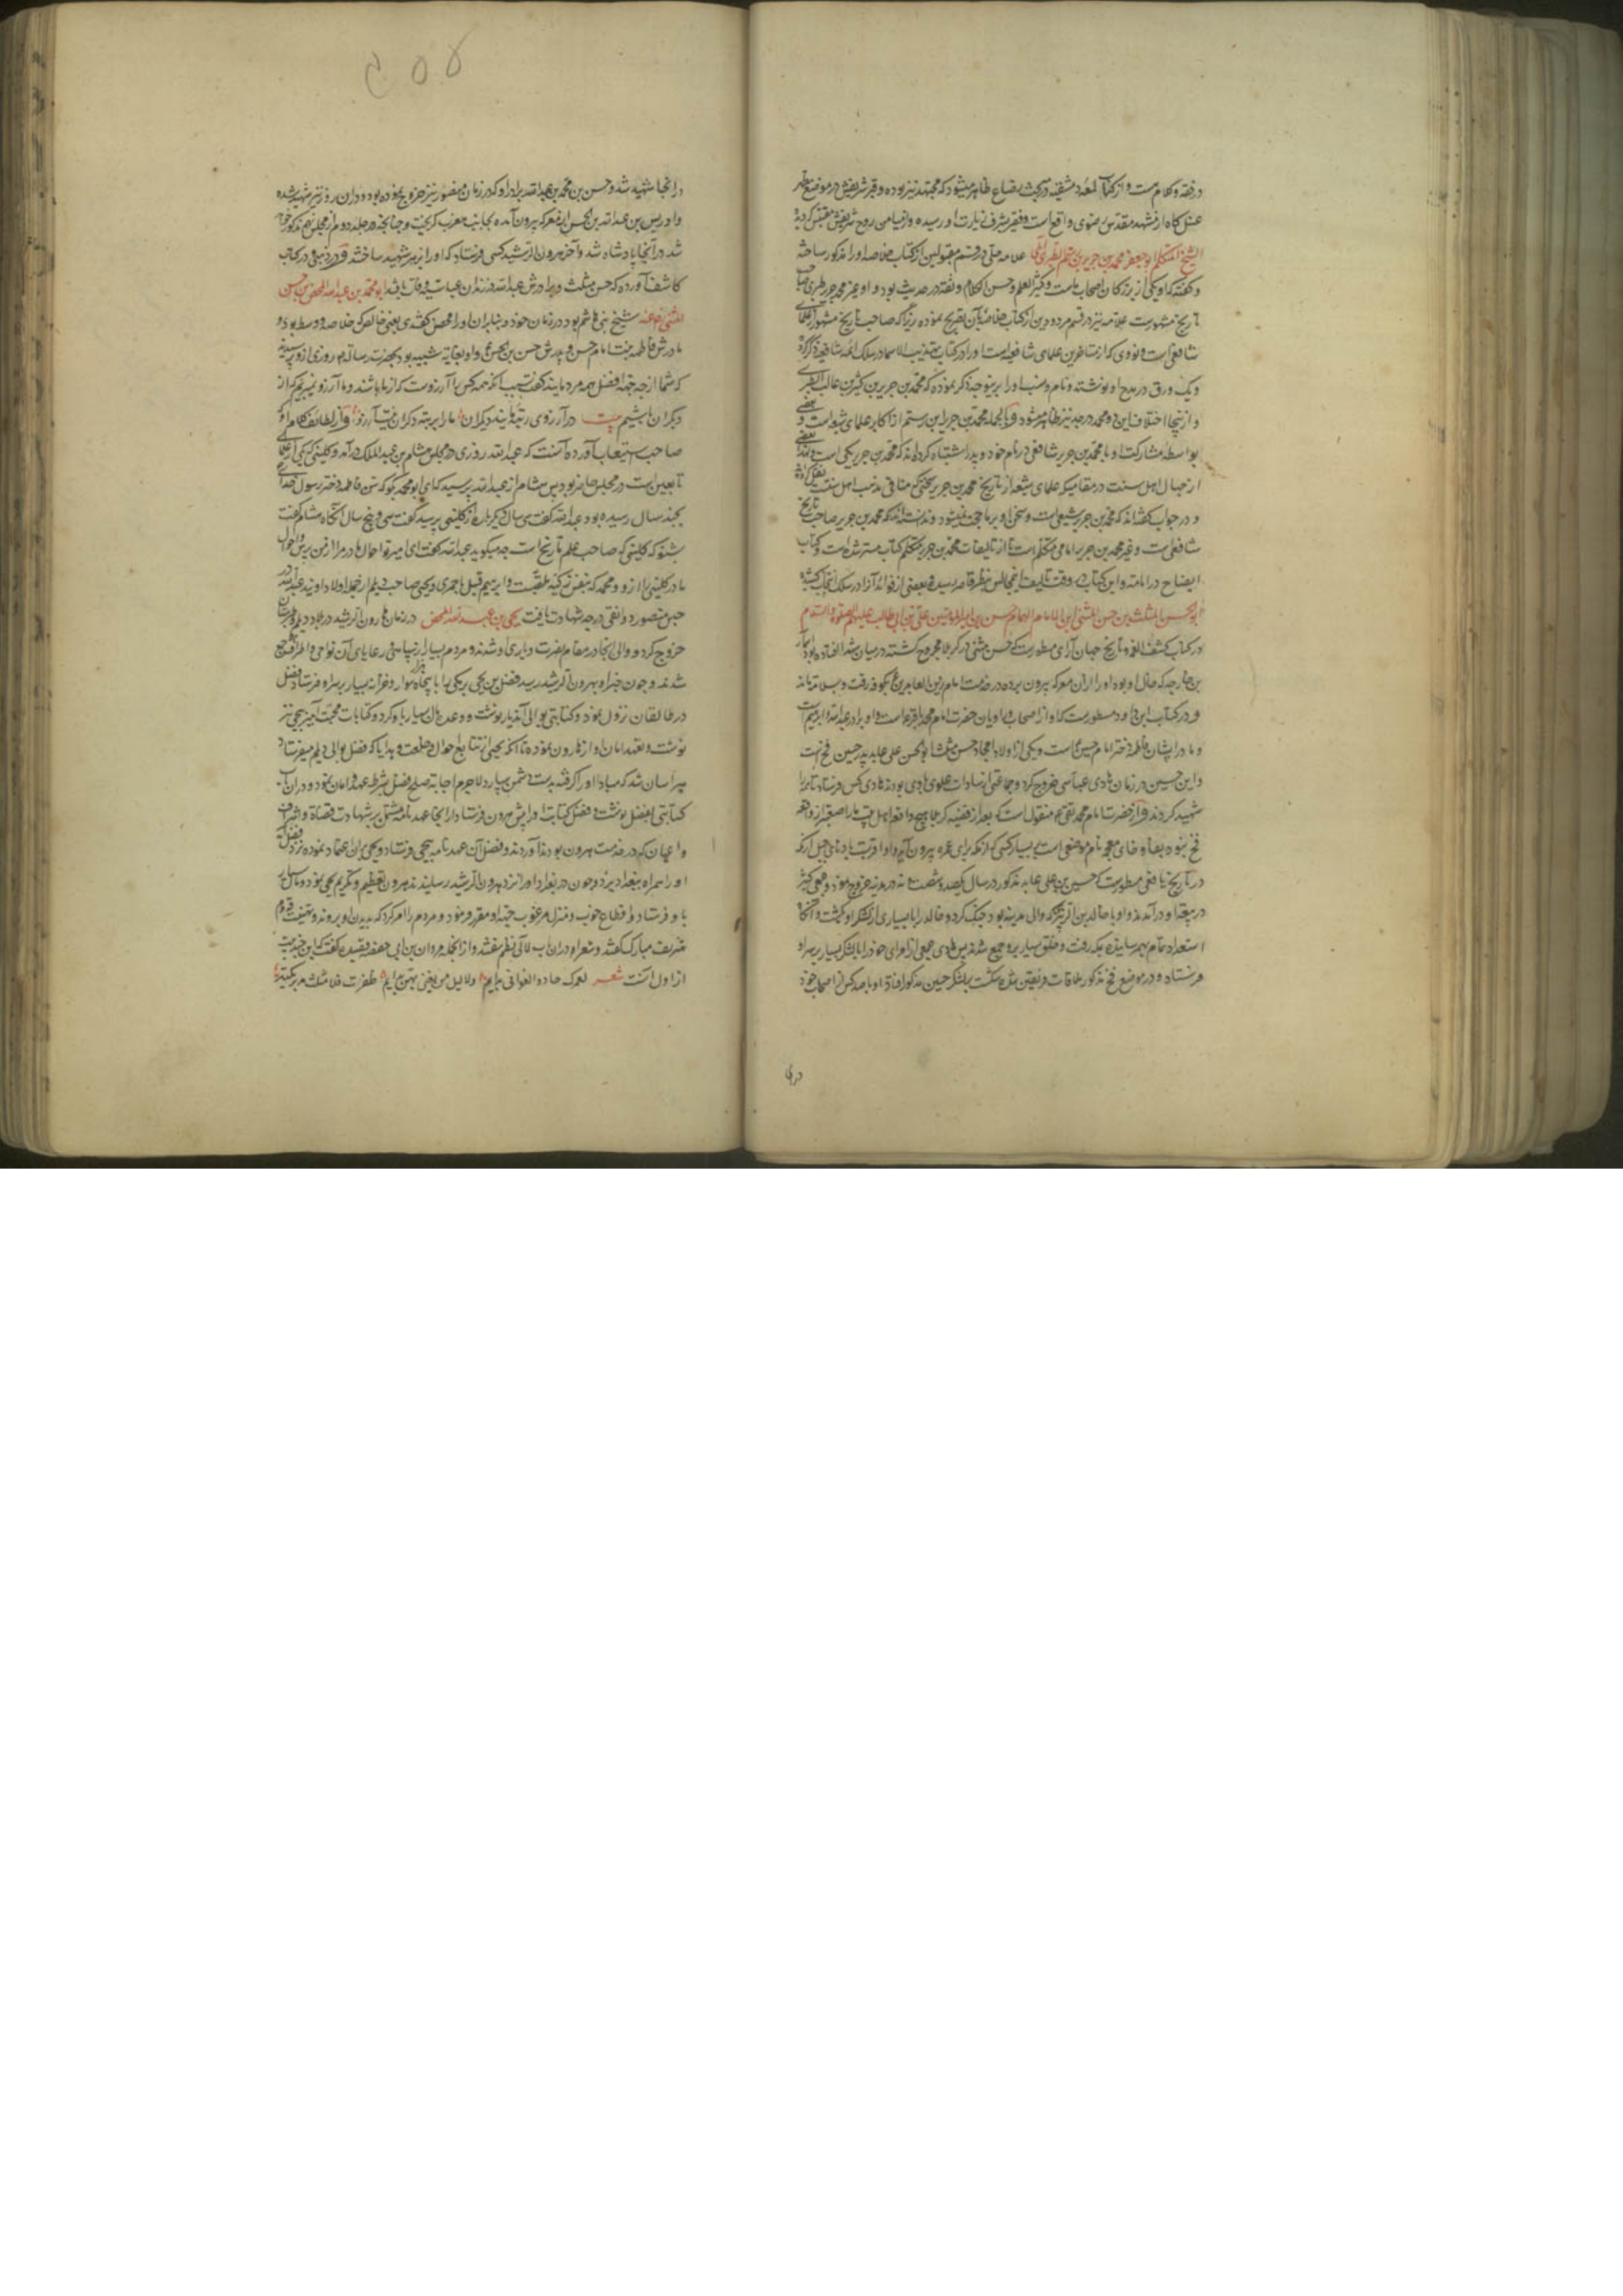 در فقه و کلام است و از کتاب لمعه دمشقیه در بحث رضاع ظاهر میشود که مجتهد نیز بوده و قبر شریفش در موضع مشهور
غسل کاه از مشهد مقدس رضوی واقع است و فقیر بشرف زیارت او رسیده و از میامن روح شریفش مقتبس گردیده
الشیخ المتکلم ابو جعفر محمد بن جریر بن رستم الطبری الآملی علامه حلی در قسم مقبولین از کتاب خلاصه او را مذکور ساخته
و گفته که او یکی از بزرگان اصحاب ماست و کثیر العلم و حسن الکلام و ثقه در حدیث بود و او غیر محمد جریر طبری صاحب
تاریخ مشهورست علامه نیز در قسم مردودین از کتاب خلاصه بآن تصریح نموده زیرا که صاحب تاریخ مشهور از علمای
شافعی است و نووی که از متاخرین علمای شافعیه است او را در کتاب تهذیب الاسما در سلک ائمه شافعیه ذکر کرده
و یک ورق در مدح او نوشته و نام و نسب او را برینوجه ذکر نموده که محمد بن جریر بن کثیر بن غالب الطبری
و از اینجا اختلاف این دو محمد در جد نیز ظاهر میشود و بالجمله محمد بن جریر ابن رستم از اکابر علمای شیعه است و بعضی
بواسطه مشارکت او با محمد بن جریر شافعی در نام خود و پدر اشتباه کرده‌اند که محمد بن جریر یکی است و لهذا بعضی
از جهال اهل سنت در مقامیکه علمای شیعه از تاریخ محمد بن جریر سخنی که منافی مذهب اهل سنت نقل کرده
و در جواب گفته‌اند که محمد بن جریر شیعی است و سخن او بر ما حجت نمیشود و ندانسته‌اند که محمد بن جریر صاحب تاریخ
شافعی است و غیر محمد بن جریر امامی متکلم است و از تالیفات محمد بن جریر متکلم کتاب مسترشد است و کتاب
ایضاح در امامت و این کتاب در وقت تالیف این مجالس بنظر قاصر رسید و بعضی از فوائد آنرا در سلک انتخاب کشیده
ابو الحسن المثلث بن حسن المثنی ابن الامام الهمام حسن بن امیر المؤمنین علی بن ابی طالب علیهم الصلوة والسلام
در کتاب کشف الغمه و تاریخ جهان آرای مسطورست که حسن مثنی در کربلا مجروح گشته در میان شهدا افتاده بود اسماء
بن خارجه که خال او بود او را از ان معرکه بیرون برده در خدمت امام زین العابدین ع بکوفه رفت و بسلامت ماند
و در کتاب ابن داود مسطورست که او از اصحاب و راویان حضرت امام محمد باقر ع است و او برادر عبدالله و ابرهیم است
و مادر ایشان فاطمه دختر امام حسین ع است و یکی از اولاد امجاد حسن مثلث ابو الحسن علی عابد پدر حسین فخ است
و این حسین در زمان هادی عباسی خروج کرد و جماعتی از سادات علوی با وی بودند هادی کس فرستاد تا او را
شهید کردند و از حضرت امام محمد تقی ع منقول است که بعد از قضیه کربلا هیچ واقعه اهل بیت ما را صعبتر از واقعه
فخ نبوده بفا و خای معجمه نام موضعی است بسیار کسی که از مکه برای عمره بیرون آید
در تاریخ یافعی مسطورست که حسین بن علی عابد مذکور در سال یکصد و شصت و نه در مدینه خروج نمود و جمعی کثیر
در بیعت او درآمدند و او با خالد بن که والی مدینه بود جنگ کرد و خالد را با بسیاری از لشکر او بکشت و آنگاه
استعداد تمام بهم رسانیده بمکه رفت و خلق بسیار برو جمع شدند پس هادی جمعی از امرای خود را با لشکر بسیار بر سر او
فرستاد و در موضع فخ مذکور ملاقات فریقین شد شکست بر لشکر حسین مذکور افتاد و او با صد کس از اصحاب خود
درانجا
درانجا شهید شد و حسن بن محمد بن عبدالله برادر او که در زمان منصور نیز خروج نموده بود در ان روز نیز شهید شده
و ادریس بن عبدالله بن الحسن از معرکه بیرون آمده بجانب مغرب گریخت و چنانچه در جلد دوم از مجلس نهم مذکور خواهد
شد در آنجا پادشاه شد و آخر هرون الرشید کسی فرستاد که او را زهر شهید ساختند و در کتاب
کاشف آورده که حسن مثلث و برادرش عبدالله در زندان عباسیه وفات یافتند ابو محمد بن عبدالله المحض بن حسن
المثنی رضی عنه شیخ بنی هاشم بود در زمان خود و بنابران او را محض گفتندی یعنی خالص که خلاصه و وسط بود و
مادرش فاطمه بنت امام حسین و پدرش حسن بن الحسن ع و او بغایت شبیه بود بحضرت رسالت ص روزی از و پرسیدند
که شما از چه جهت افضل همه مردمانید گفت بسبب انکه همه کس را آرزوست که از ما باشند و ما آرزو نمیبریم که از
دیگران باشیم بیت در آرزوی رتبهٔ مایند دیگران ما را برتبهٔ دگران نیست آرزو و از لطائف کلام او
صاحب استیعاب آورده آنست که عبدالله روزی در مجلس هشام بن عبدالملک درآمد و کلبی که یکی از علمای
تابعین است در مجلس حاضر بود پس هشام از عبدالله پرسید که ای ابو محمد بگو که سن فاطمه دختر رسول خدای
بچند سال رسیده بود عبدالله گفت سی سال دیگر باره از کلبی پرسید گفت سی و پنج سال آنگاه هشام گفت
بشنو که کلبی که صاحب علم تاریخ است چه میگوید عبدالله گفت ای امیر تو احوال مادر مرا از من پرس و احوال
مادر کلبی را از و و محمد که بنفس زکیه ملقبست و ابرهیم قتیل باخمری و یحیی صاحب دیلم از جمله اولاد اویند عبدالله در
حبس منصور دوانقی درجه شهادت یافت یحیی بن عبدالله المحض در زمان هارون الرشید در بلاد دیلم و طبرستان
خروج کرد و والی انجا در مقام نصرت و یاری او شدند و مردم بسیار از سپاهی و رعایای آن نواحی و اطراف جمع
شدند و چون خبر او بهرون الرشید رسید فضل بن یحیی برمکی را با پنجاه هزار سوار و خزانه بسیار بر سر او فرستاد فضل
در طالقان نزول نمود و کتابتی بوالی آندیار نوشت و وعده‌های بسیار باو کرد و کتابات محبت آمیز بیحیی نیز
نوشت و تعهد امان او از هارون نموده تا آنکه یحیی از تتابع احوال و خلعت و هدایا که فضل بوالی دیلم میفرستاد
هراسان شد که مبادا او را گرفته بدست دشمن بسپارد لاجرم اجابت صلح فضل بشرط عهد و امان نمود و دران باب
کتابتی بفضل نوشت و فضل کتابت او را پیش هرون فرستاد از آنجا عهدنامه مشتمل بر شهادت قضاة و اشراف
و اعیان که در خدمت هرون بودند آوردند و فضل آن عهدنامه بیحیی فرستاد و یحیی بران اعتماد نموده نزد فضل
او را همراه ببغداد برد و چون در بغداد او را نزد هرون الرشید رسانیدند هرون تعظیم و تکریم یحیی نمود و مال بسیار
باو فرستاد و اقطاع خوب و منزل مرغوب جهت او مقرر فرمود و مردم را امر کرد که بدیدن او بروند و تهنیت قدوم
شریف مبارک گفتند و شعرا دران باب لآلی نظم سفتند و از انجمله مروان بن ابی حفصه قصیده گفت که این چند بیت
از اول آنست شعر